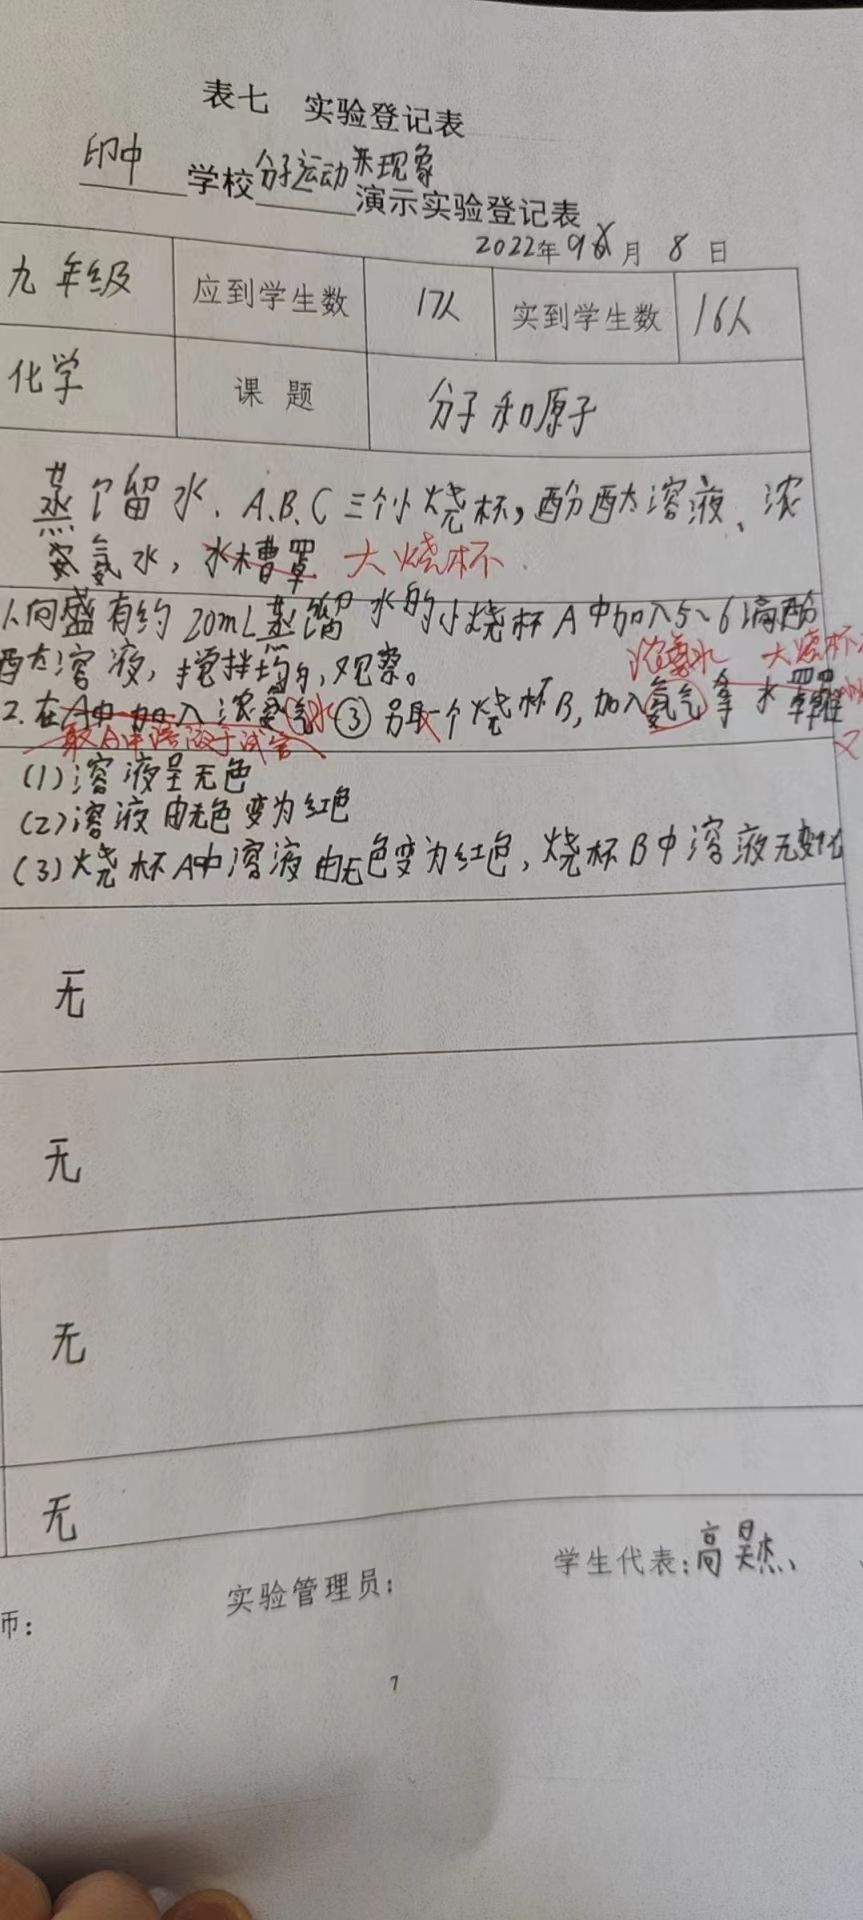 表七 实验登记表
印中 学校 分子运动 现象 演示实验登记表
2022年 9 月 8 日
九年级 应到学生数 17人 实到学生数 16人
化学 课题 分子和原子
蒸馏水、A、B、C三个小烧杯,酚酞溶液、浓
氨水,水槽罩 大烧杯
1、向盛有约20mL蒸馏水的小烧杯A中加入5~6滴酚
酞溶液,搅拌均匀,观察。
浓氨水 大烧杯
2.在A中加入浓氨气水 ③另取一个烧杯B,加入氨气拿水罩
取A中溶液于试管
(1)溶液呈无色
(2)溶液由无色变为红色
(3)烧杯A中溶液由无色变为红色,烧杯B中溶液无变化
无
无
无
无
师: 实验管理员: 学生代表:高昊杰
7